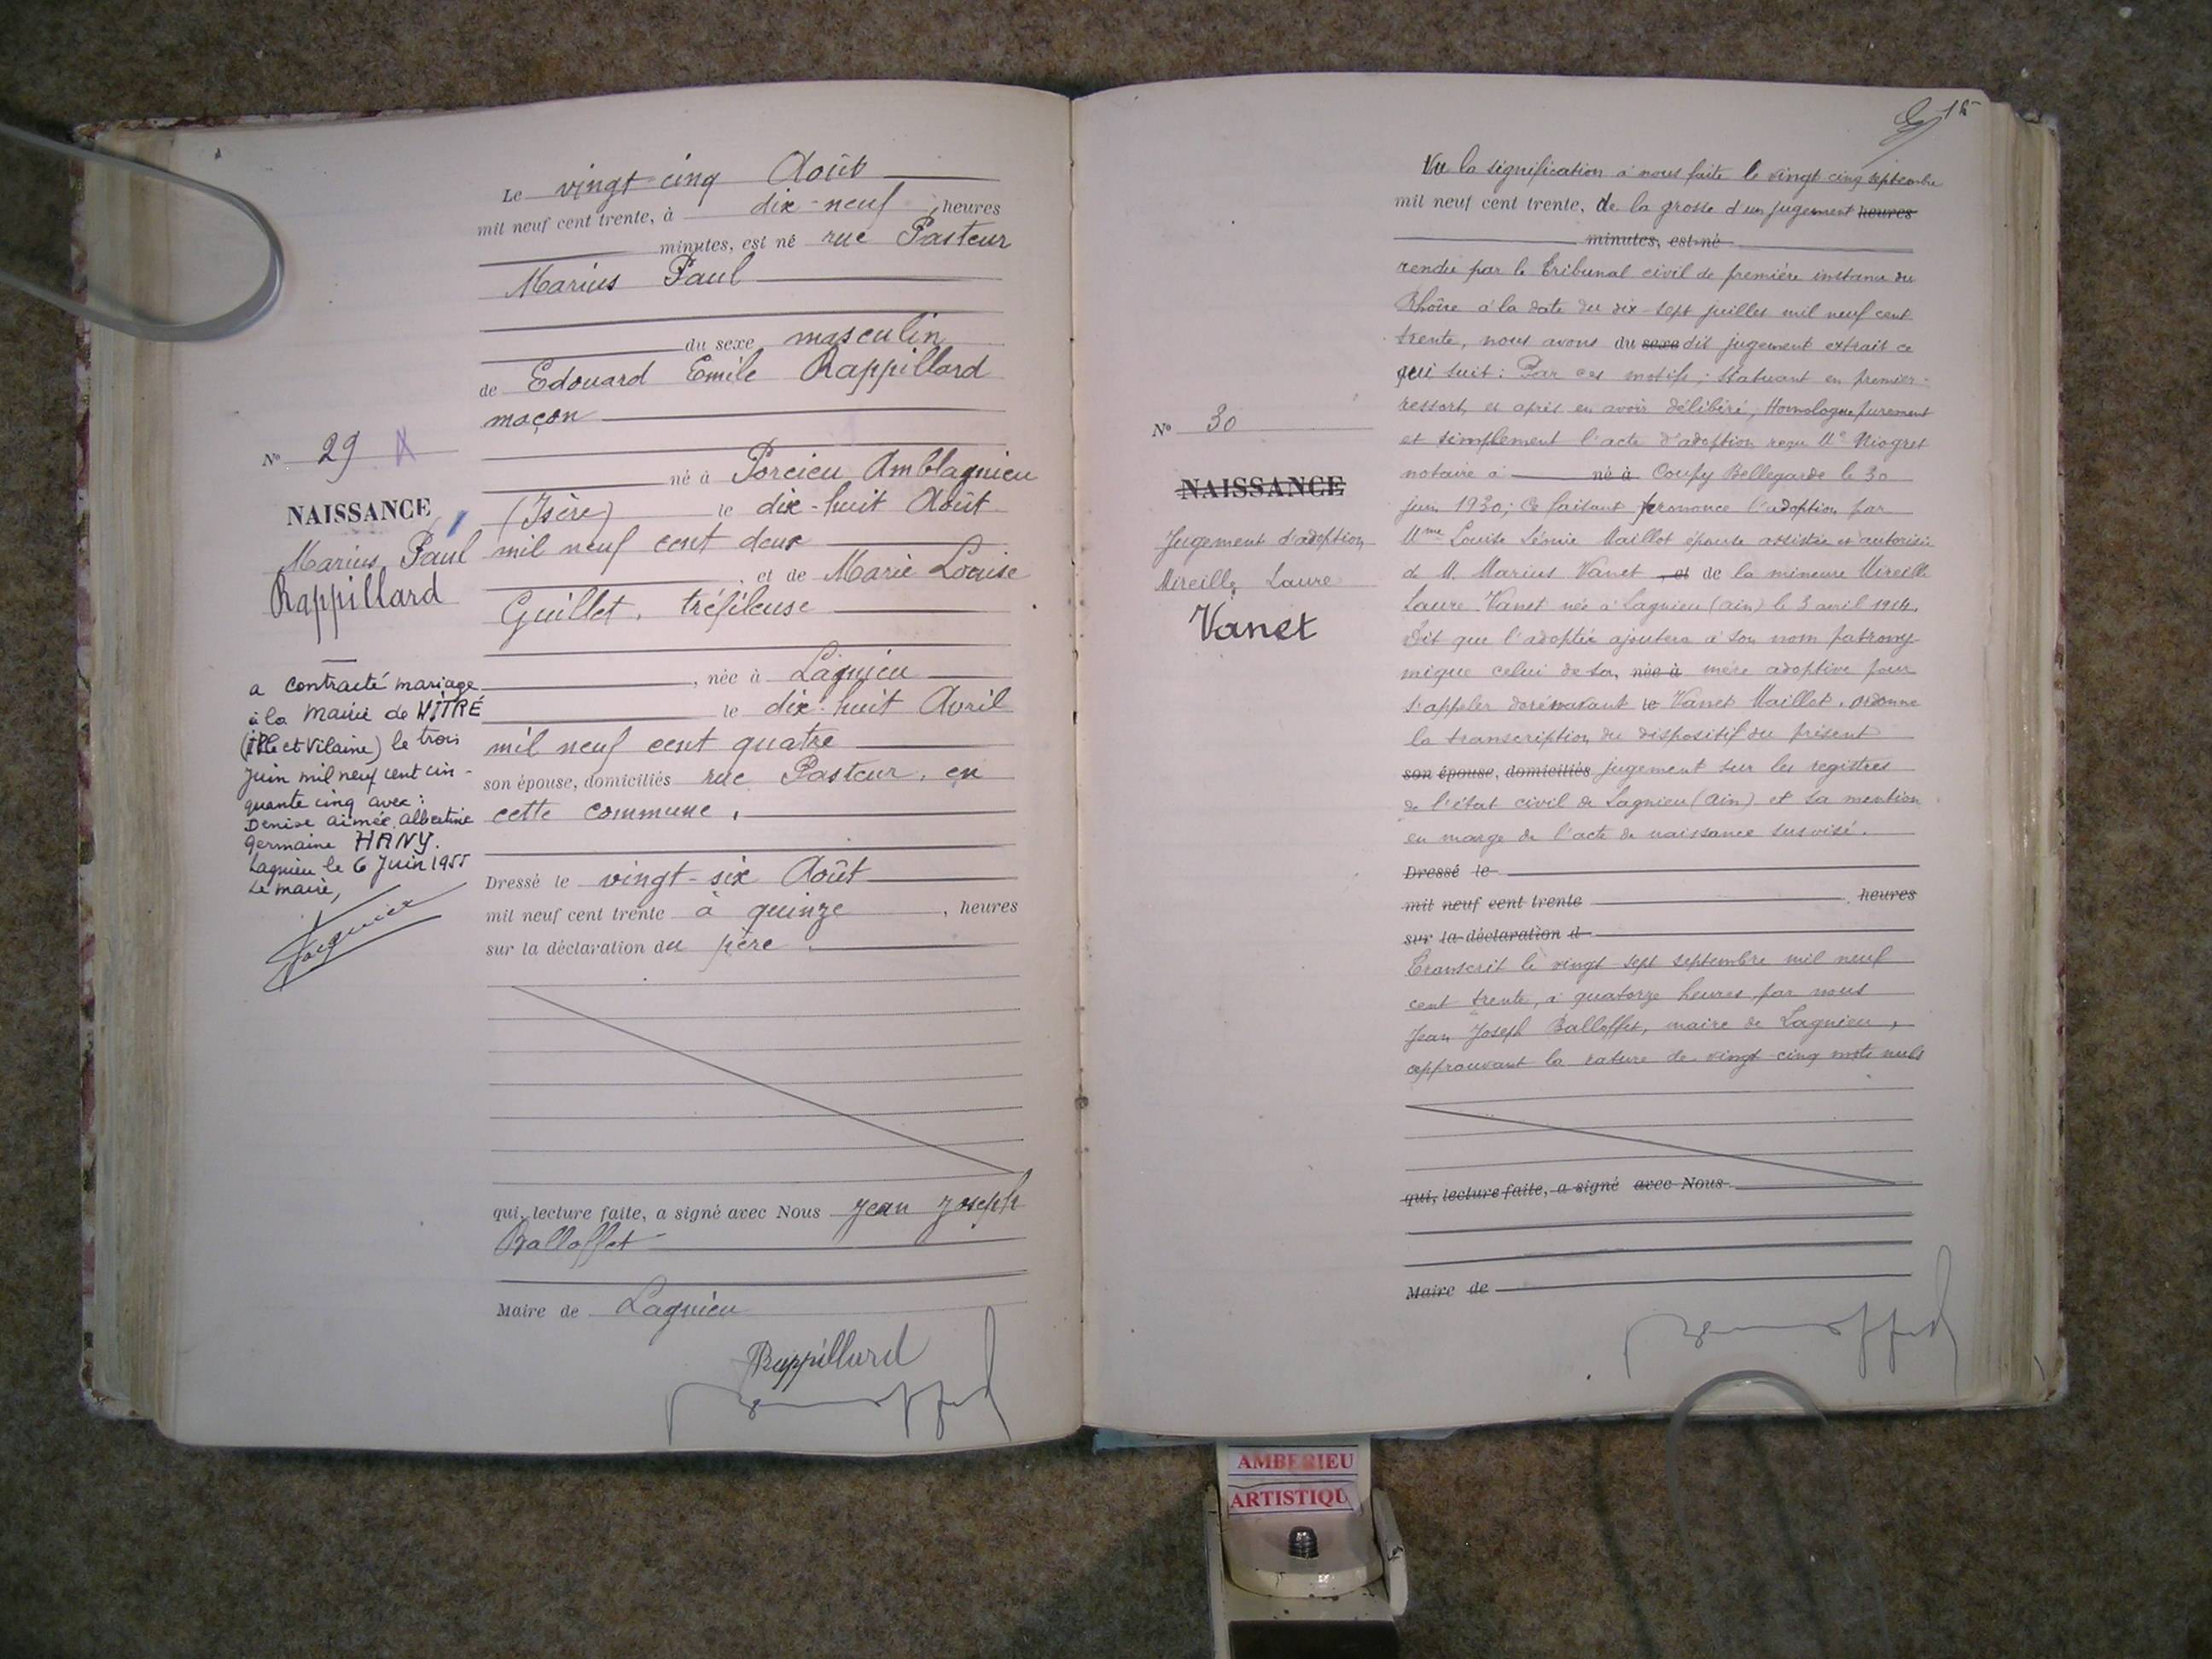 Le vingt-cinq Août
mil neuf cent trente, à dix-neuf heures
minutes, est né rue Pasteur
Marius Paul
du sexe masculin
de Edouard Emile Rappillard
maçon
né à Porcieu Amblagnieu
(Isère) le dix-huit Août
mil neuf cent deux
, et de Marie Louise
Guillet, tréfileuse
, née à Lagnieu
le dix-huit Avril
mil neuf cent quatre
son épouse, domiciliés rue Pasteur, en
cette commune,
Dressé le vingt-six Août
mil neuf cent trente à quinze, heures
sur la déclaration du père.
qui, lecture faite, a signé avec Nous Jean Joseph
Balloffet
Maire de Lagnieu
Rappillard
No 29
NAISSANCE
Marius Paul
Rappillard
a contracté mariage
à la Mairie de VITRÉ
(Ille et Vilaine) le trois
Juin mil neuf cent cin-
quante cinq avec :
Denise Aimée Albertine
Germaine HANY.
Lagnieu le 6 Juin 1955
Le maire,
No 30
NAISSANCE
Jugement d'adoption
Mireille Laure
Vanet
Vu la signification à nous faite le vingt cinq septembre
mil neuf cent trente, de la grosse d'un jugement heures
minutes, est né
rendu par le Tribunal civil de première instance du
Rhône à la date du dix-sept juillet mil neuf cent
trente, nous avons du sexe dit jugement extrait ce
qui suit : Par ces motifs ; Statuant en premier
ressort, et après en avoir délibéré, Homologue purement
et simplement l'acte d'adoption reçu Me Niogret
notaire à né à Coupy Bellegarde le 30
juin 1930 ; Ce faisant prononce l'adoption par
Mme Louise Léonie Maillot épouse assistée et autorisée
de M. Marius Vanet et de la mineure Mireille
Laure Vanet née à Lagnieu (Ain) le 3 avril 1914.
Dit que l'adoptée ajoutera à son nom patrony-
mique celui de sa née à mère adoptive pour
s'appeler dorénavant le Vanet Maillot. Ordonne
la transcription du dispositif du présent
son épouse, domiciliés jugement sur les registres
de l'état civil de Lagnieu (Ain) et sa mention
en marge de l'acte de naissance susvisé.
Dressé le
mil neuf cent trente, heures
sur la déclaration d
Transcrit le vingt sept septembre mil neuf
cent trente, à quatorze heures, par nous
Jean Joseph Balloffet, maire de Lagnieu,
approuvant la rature de vingt-cinq mots nuls
qui, lecture faite, a signé avec Nous
Maire de
AMBERIEU
ARTISTIQU